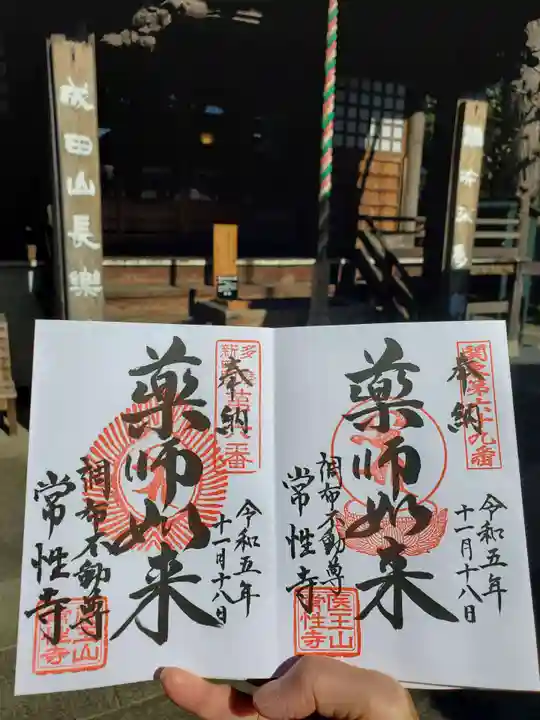 成田山長樂
奉納
藥師如来
調布不動尊
常性寺
令和五年
十一月十八日
奉納
藥師如来
調布不動尊
常性寺
令和五年
十一月十八日
医王山
常性寺